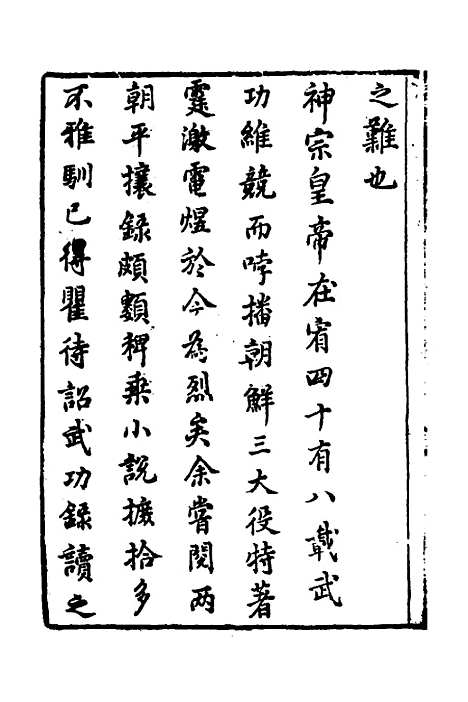 之難也
神宗皇帝在宥四十有八載武
功維競而哱播朝鮮三大役特著
霆激電煜於今為烈矣余嘗閱兩
朝平攘錄頗類稗乘小說摭拾多
不雅馴已得瞿待詔武功錄讀之